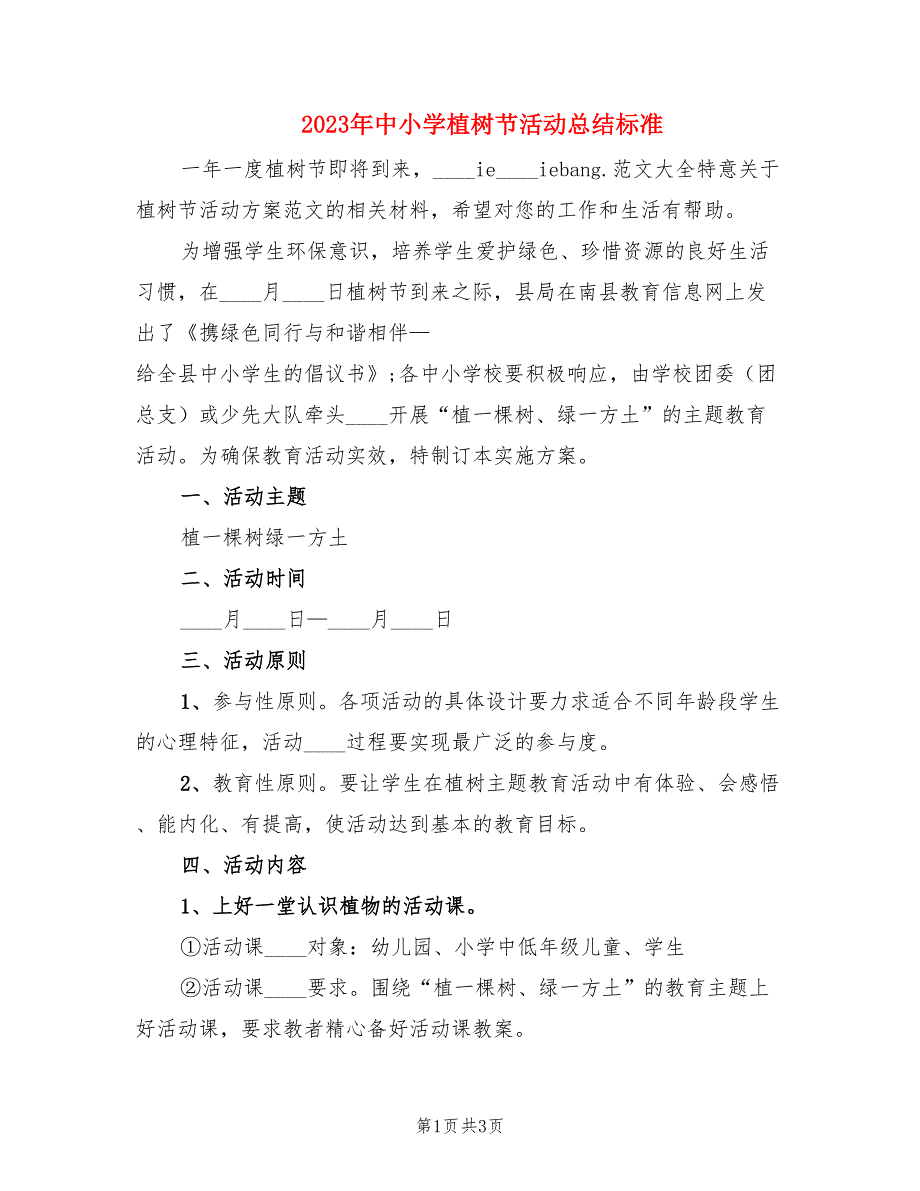 2023年中小学植树节活动总结标准
一年一度植树节即将到来，____ie____iebang.范文大全特意关于
植树节活动方案范文的相关材料，希望对您的工作和生活有帮助。
为增强学生环保意识，培养学生爱护绿色、珍惜资源的良好生活
习惯，在____月____日植树节到来之际，县局在南县教育信息网上发
出了《携绿色同行与和谐相伴—
给全县中小学生的倡议书》;各中小学校要积极响应，由学校团委（团
总支）或少先大队牵头____开展“植一棵树、绿一方土”的主题教育
活动。为确保教育活动实效，特制订本实施方案。
一、活动主题
植一棵树绿一方土
二、活动时间
____月____日—____月____日
三、活动原则
1、参与性原则。各项活动的具体设计要力求适合不同年龄段学生
的心理特征，活动____过程要实现最广泛的参与度。
2、教育性原则。要让学生在植树主题教育活动中有体验、会感悟
、能内化、有提高，使活动达到基本的教育目标。
四、活动内容
1、上好一堂认识植物的活动课。
①活动课____对象：幼儿园、小学中低年级儿童、学生
②活动课____要求。围绕“植一棵树、绿一方土”的教育主题上
好活动课，要求教者精心备好活动课教案。
第1页共3页